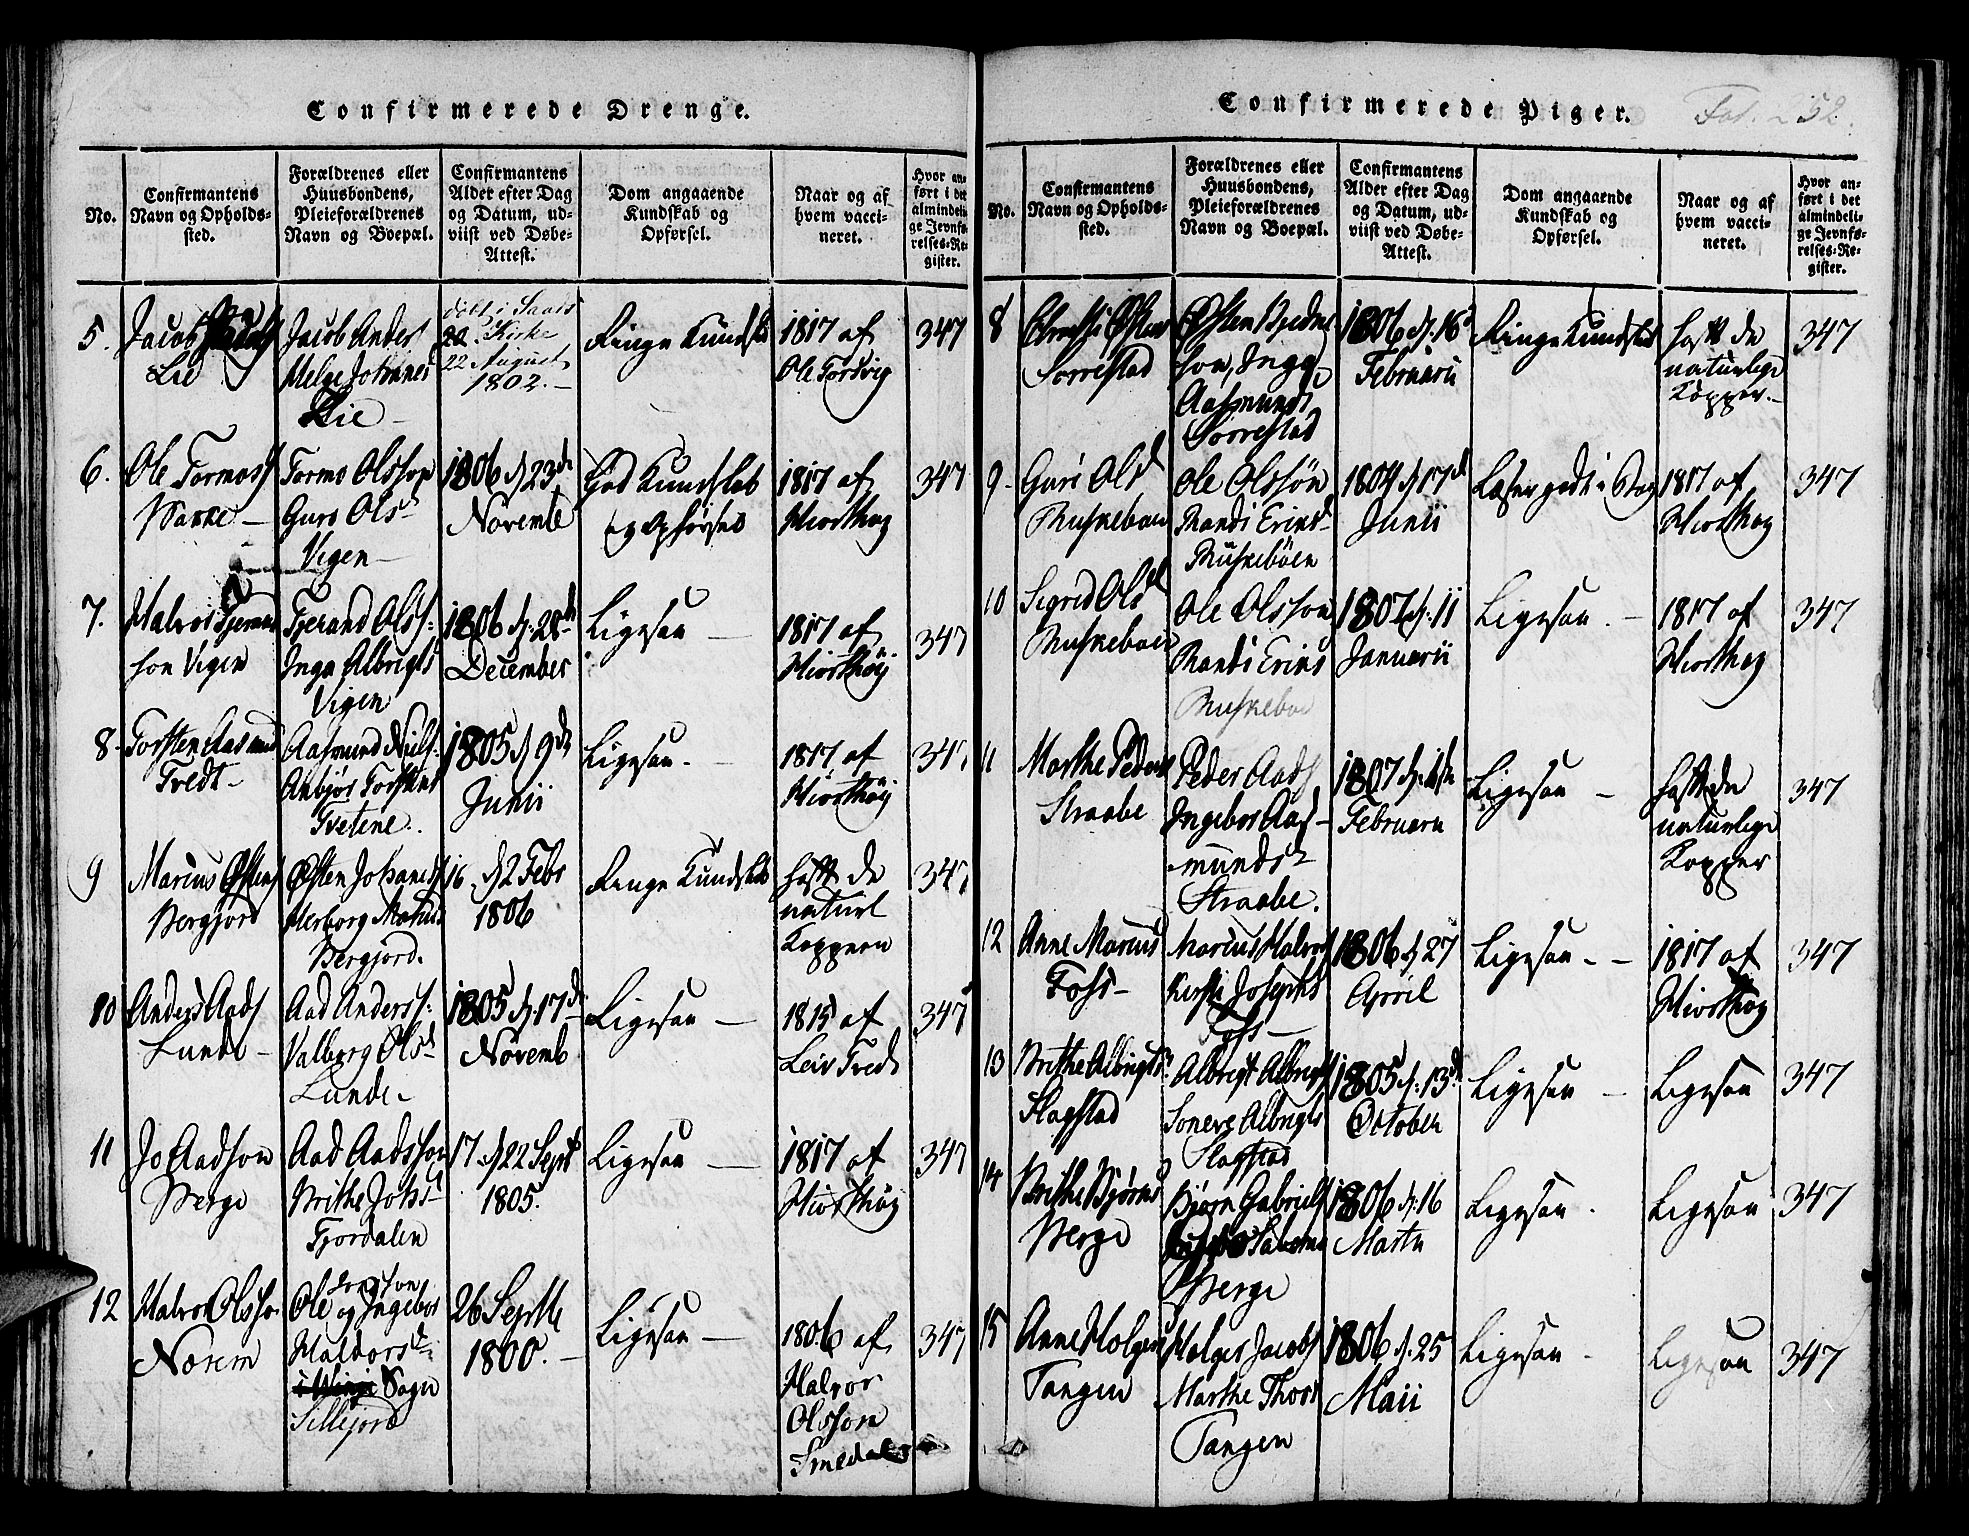 Confirmerede Drenge.
No.
Confirmantens
Navn og Opholds-
sted.
Forældrenes eller
Huusbondens,
Pleieforældrenes
Navn og Boepæl.
Confirmantens
Alder efter Dag
og Datum, ud-
viist ved Døbe-
Attest.
Dom angaaende
Kundskab og
Opførsel.
Naar og af
hvem vacci-
neret.
Hvor an-
ført i det
almindeli-
ge Jevnfø-
relses-Re-
gister.
5.
Jacob
Lie
Jacob Anders
Helge Johannes
Lie
døbt i Saude
Kirke
22 August
1802.
Ringe Kundskab
1817 af
Ole Tortvig
347
6.
Ole Tormoss
Wasse
Tormo Olsson
Guro Olsd
Vigen
1806 d. 23de
Novemb
God Kundskab
og Opførsel
1817 af
Hiorthøy
347
7.
Halvor Tjeran
son Vigen
Tjerand Olss.
Inga Albrigts
Vigen
1806 d. 28de
December
Ligesaa
1817 af
Hiorthøy
347
8.
Torsten Aasmund
Tvedt
Aasmund Niels.
Anbjør Torstens
Tvetene.
1805 d 9de
Junii
Ligesaa.
1817 af
Hiorthøy
347
9
Marius Østens
Bergjord
Østen Johanes
Herborg Marius
Bergjord.
16 d 2 Febr
1806
Ringe Kundskab
haft de
naturl
Koppern
347
10
Anders Aads
Lunde
Aad Anderss.
Valborg Olsd
Lunde
1805 d. 17de
Novemb
Ligesaa
1815 af
Leiv Tred
347
11
Jo Aadson
Berge
Aad Aadsson
Brithe Johsd
Fjordalen
17 d 22 Sept
1805.
Ligesaa
1817 af
Hiorthøy
347
12
Halvor Olsson
Norem
Ole
og Ingebor
Haldorsd
Sogn
Sillejord
26 Septb
1800.
Ligesaa
1806 af
Halvor
Olsson
Smedal
347
Confirmerede Piger.
252.
No.
Confirmantens
Navn og Opholds-
sted.
Forældrenes eller
Huusbondens,
Pleieforældrenes
Navn og Boepæl.
Confirmantens
Alder efter Dag
og Datum, ud-
viist ved Døbe-
Attest.
Dom angaaende
Kundskab og
Opførsel.
Naar og af
hvem vacci-
neret.
Hvor an-
ført i det
almindeli-
ge Jevnfø-
relses-Re-
gister.
8
Sorrestad
Østen Bjedne
son, Inge
Aasmunds
Sorrestad
1806 d. 16de
Februarii
Ringe Kundskab
haft de
naturlige
Kopper.
347
9
Guri Olsd
Buskeboen
Ole Olssøn
Randi Erics
Buskebøen
1804 d 17d
Junii
Læser godt i Bog
1817 af
Hiorthøy
347
10
Sigrid Olsd
Buskeboen
Ole Olsson
Randi Erics
Buskeboe
1807 d. 11
Januarii
Ligesaa.
1817 af
Hiorthøy
347
11
Marthe Peders
Straabe
Peder Aads
Ingebor Aas-
mundsd
Straabe.
1807 d. 1ste
Februarii
Ligesaa
haft de
naturlige
Kopper
347
12
Anne Marius
Foss
Marius Halvors
Kirsti Josephs
Foss
1806 d 27
April
Ligesaa
1817 af
Hiorthøy
347
13
Brithe Albrigts
Slagstad
Albrigt Albrigts
Albrigts
Slagstad
1805 d. 13de
October
Ligesaa
Ligesaa
347
14
Brithe Bjørns
Berge
Bjørn Gabriels
Berge
1806 d. 16
Martii
Ligesaa.
Ligesaa
347
15
Anne Holgers
Tangen
Holger Jacobs
Marthe Thors
Tangen
1806 d. 25
Maii
Ligesaa
Ligesaa
347